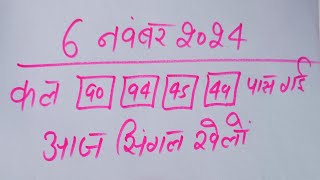 6 नवंबर २०२४
कल 90 94 95 49 पास गई
आज सिंगल खेलों